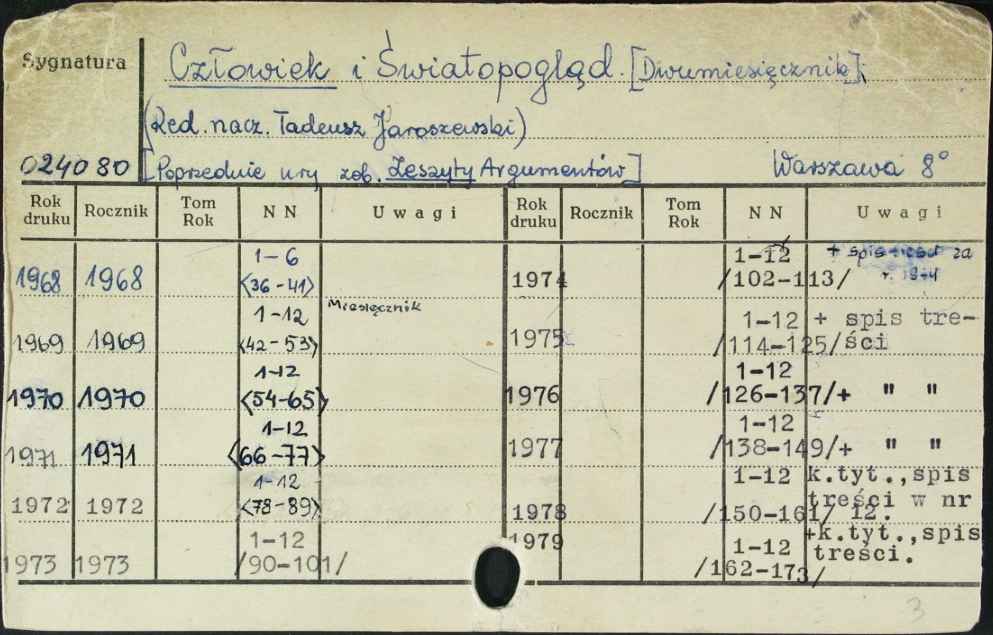 Sygnatura
Człowiek i Światopogląd. [Dwumiesięcznik];
(Red. nacz. Tadeusz Jaroszewski)
024080 [Poprzednie nry zob. Zeszyty Argumentów] Warszawa 8°
Rok druku Rocznik Tom Rok N N Uwagi Rok druku Rocznik Tom Rok N N Uwagi
1968 1968 1-6 <36-41>
Miesięcznik
1969 1969 1-12 <42-53>
1970 1970 1-12 <54-65>
1971 1971 1-12 <66-77>
1972 1972 1-12 <78-89>
1973 1973 1-12 /90-101/
1974 1-12 /102-113/ + spis treści za r. 1974
1975 1-12 /114-125/ + spis tre-
ści
1976 1-12 /126-137/+ " "
1977 1-12 /138-149/+ " "
1978 1-12 /150-161/ k.tyt.,spis
treści w nr
12.
1979 1-12 /162-173/ +k.tyt.,spis
treści.
3